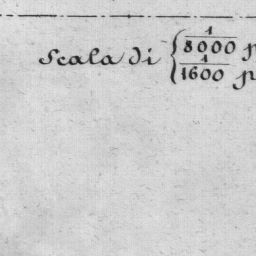 Scala di { 1/8000 p
1/1600 p